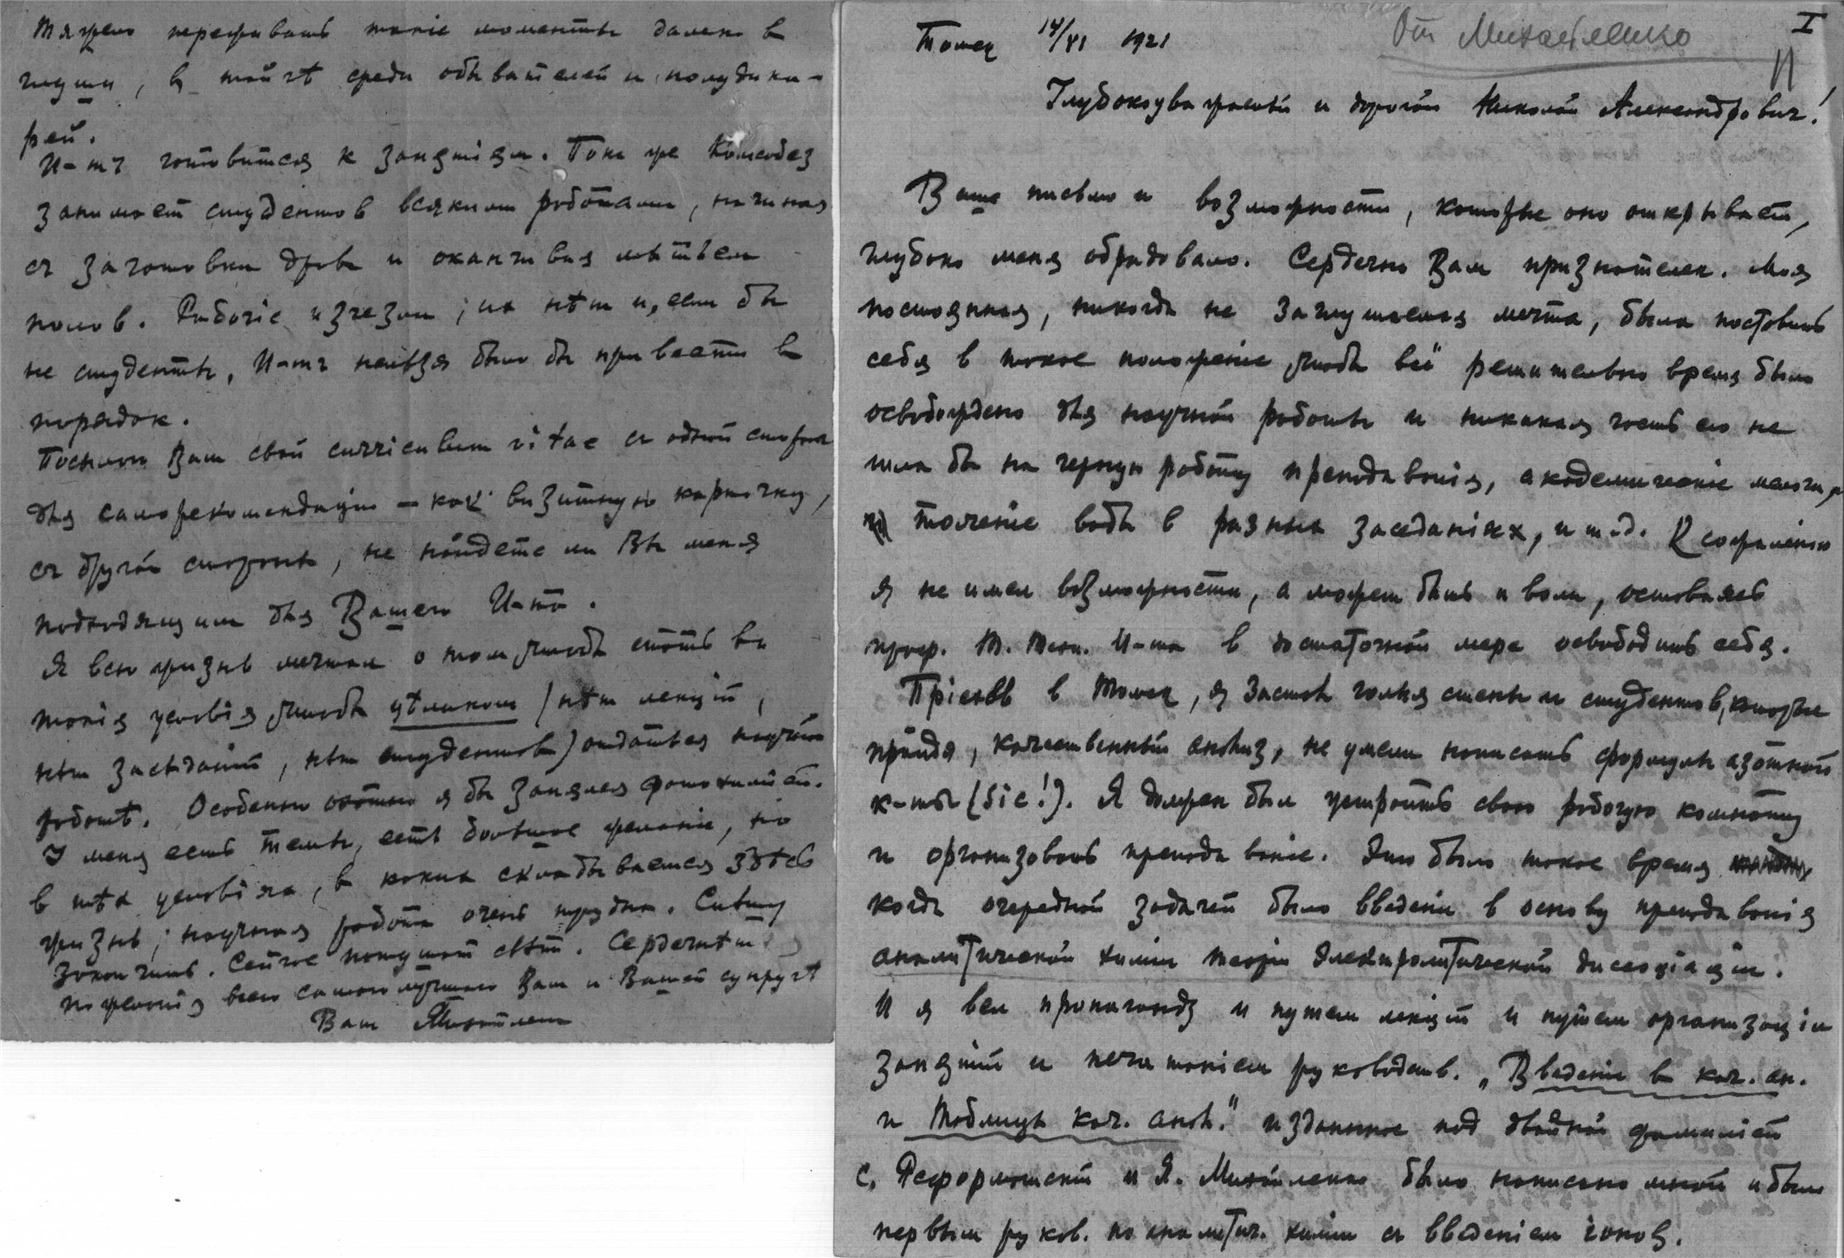 Тяжело переживать такіе моменты далеко в
глуши, в тайгѣ среди обывателей и полудика-
рей.
И-тъ готовится к занятіям. Пока же Комсодез
занимает студентов всякими работами, начиная
съ заготовки дров и оканчивая мытьем
полов. Рабочіе изчезли; их нѣт и, если бы
не студенты, И-тъ нельзя было бы привести в
порядок.
Посылаю Вам свой curriculum vitae съ одной стороны
для саморекомендаціи — как визитную карточку,
съ другой стороны, не найдете ли Вы меня
подходящим для Вашего И-та.
Я всю жизнь мечтал о том чтобы стать въ
такія условія чтобы цѣликом (нѣт лекцій,
нѣт засѣданій, нѣт студентов) отдаться научной
работѣ. Особенно охотно я бы занялся фотохиміей.
У меня есть темы, есть большое желаніе, но
в тѣх условіях, в каких складывается здѣсь
жизнь, научная работа очень трудна. Спѣшу
закончить. Сейчас потушат свѣт. Сердечнѣйшія
пожеланія всего самого лучшаго Вам и Вашей супругѣ
Ваш Михайленко
От Михайленко
I
Томск 14/XI 1921
Глубокоуважаемый и дорогой Николай Александрович!
Ваше письмо и возможности, которые оно открывает,
глубоко меня обрадовало. Сердечно Вам признателен. Моя
постоянная, никогда не заглушаемая мечта, была поставить
себя в такое положеніе чтобы всё решительно время было
освобождено для научной работы и никакая часть его не
шла бы на черную работу преподаванія, академическіе мелочи,
толченіе воды в разных заседаніях, и т.д. К сожаленію
я не имел возможности, а может быть и воли, оставаясь
проф. Т. Техн. И-та в достаточной мере освободить себя.
Пріехав в Томск, я застал голыя стены и студентов, которые
пройдя, качественный анализ, не умели написать формулы азотной
к-ты (sic!). Я должен был устроить свою рабочую комнату
и организовать преподаваніе. Это было такое время
когда очередной задачей было введеніе в основу преподаванія
аналитической химіи теоріи электролитической диссоціаціи.
И я вел пропаганду и путем лекцій и путем организаціи
занятій и печатаніем руководств. „Введеніе в кач. ан.
и Таблицы кач. анал." изданное под двойной фамиліей
С. Реформатскій и Я. Михайленко было написано мной и было
первым руков. по аналитич. химіи съ введеніем іонов.